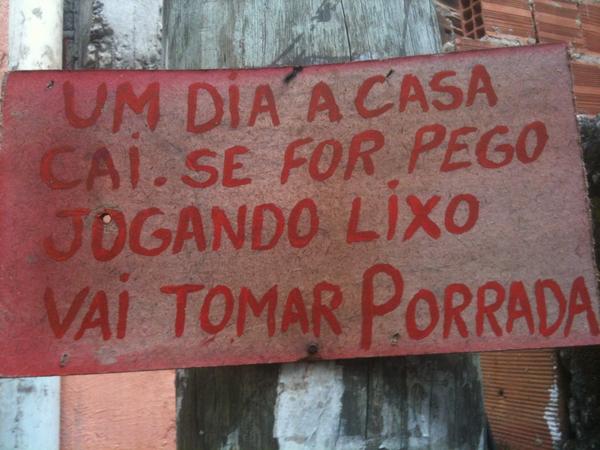 UM DiA A CASA
CAi. SE FOR PEGO
JOGANDO LiXO
VAi TOMAR PORRADA